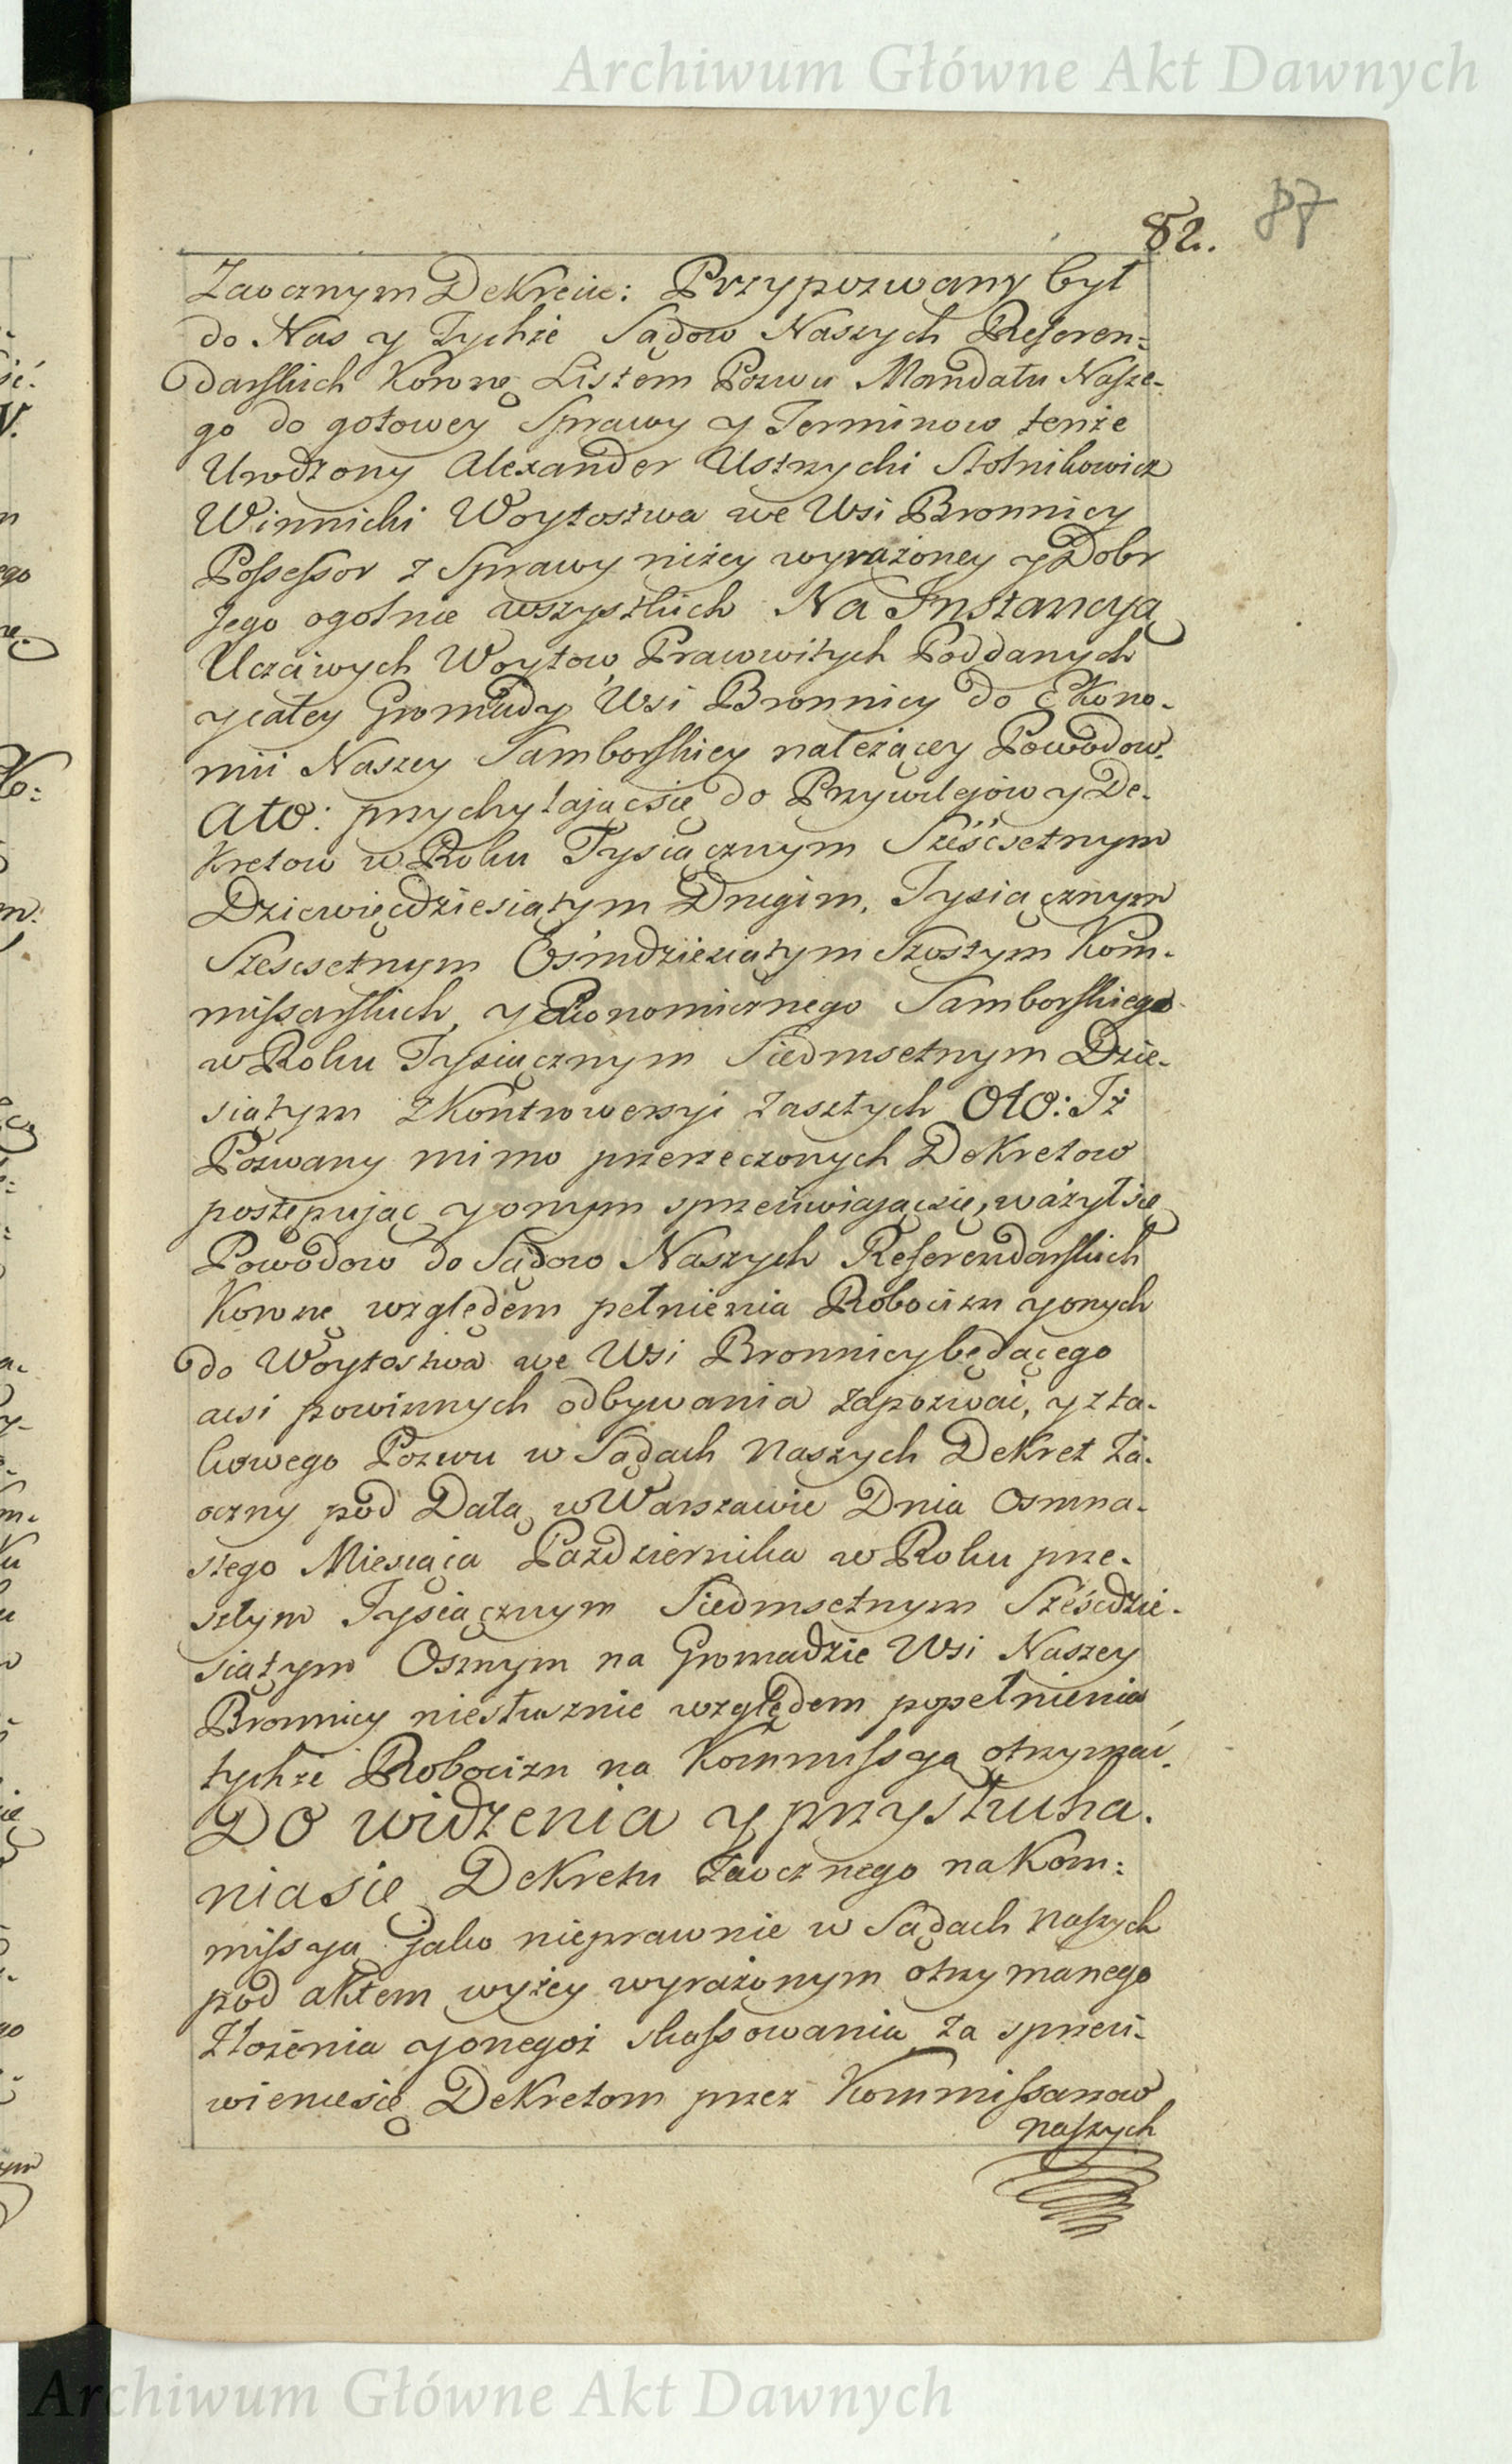 Archiwum Główne Akt Dawnych
87
82.
Zaocznym Dekrecie: Przypozwany był
do Nas y Tychże Sądow Naszych Referen:
darskich Koronę Listem Pozwu Mandatu Nasze-
go do gotowey Sprawy y Terminow tenże
Urodzony Alexander Ustrzycki Stolnikowicz
Winnicki Woytostwa we Wsi Bronnicy
Possessor z Sprawy niżey wyrażoney y Dobr
Jego ogolnie wszystkich Na Instancyą
Uczciwych Woytow Prawowitych Poddanych
y całey Gromady Wsi Bronnicy do Ekono-
mii Naszey Samborskiey należącey Powodow.
Ato: przychylaiącsię do Przywilejow y De-
kretow w Roku Tysiącznym Sześćsetnym
Dziewięcdziesiątym Drugim, Tysiącznym
Szescsetnym Ośmdziesiątym Szostym Kom-
missarskich, y Ekonomicznego Samborskiego
w Roku Tysiącznym Siedmsetnym Dzie-
siątym z Kontrowersyi zaszłych Oto: Iż
Pozwany mimo przerzeczonych Dekretow
postępując y onym sprzeciwiającsię, ważył się
Powodow do Sądow Naszych Referendarskich
Koronę względem pełnienia Robocizn y onych
do Woytostwa we Wsi Bronnicy będącego
acsi powinnych odbywania zapozwać, y z ta-
kowego Pozwu w Sądach Naszych Dekret Za-
oczny pod Datą w Warszawie Dnia Osmna-
stego Miesiąca Pazdziernika w Roku prze-
szłym Tysiącznym Siedmsetnym Sześćdzie-
siątym Osmym na Gromadzie Wsi Naszey
Bronnicy niesłusznie względem popełnienia
tychże Robocizn na Kommissyą otrzymać.
Do widzenia y przysłucha-
niasię Dekretu Zaocznego na Kom:
missyą jako nieprawnie w Sądach Naszych
pod aktem wyżey wyrażonym otrzymanego
Złożenia y onegoż skassowania za sprzeci-
wieniesię Dekretom przez Kommissarzow
naszych
Archiwum Główne Akt Dawnych